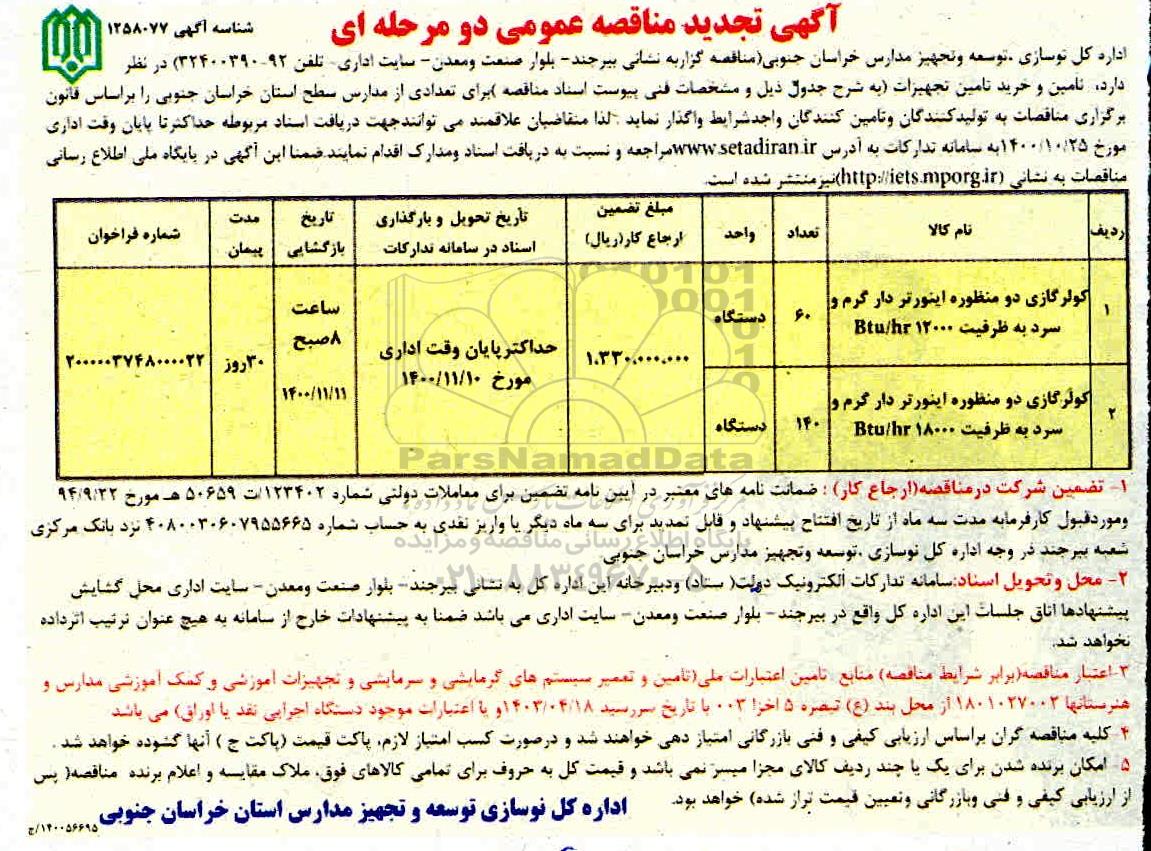 آگهی تجدید مناقصه عمومی دو مرحله ای
شناسه آگهی ۱۲۵۸۰۷۷
اداره کل نوسازی ،توسعه وتجهیز مدارس خراسان جنوبی(مناقصه گزاربه نشانی بیرجند- بلوار صنعت ومعدن- سایت اداری- تلفن ۹۲-۳۲۴۰۰۳۹۰) در نظر
دارد، تامین و خرید تامین تجهیزات (به شرح جدول ذیل و مشخصات فنی پیوست اسناد مناقصه )برای تعدادی از مدارس سطح استان خراسان جنوبی را براساس قانون
برگزاری مناقصات به تولیدکنندگان وتامین کنندگان واجدشرایط واگذار نماید .لذا متقاضیان علاقمند می توانندجهت دریافت اسناد مربوطه حداکثرتا پایان وقت اداری
مورخ ۱۴۰۰/۱۰/۲۵به سامانه تدارکات به آدرس www.setadiran.irمراجعه و نسبت به دریافت اسناد ومدارک اقدام نمایند.ضمنا این آگهی در پایگاه ملی اطلاع رسانی
مناقصات به نشانی (http://iets.mporg.ir)نیزمنتشر شده است.
ردیف نام کالا تعداد واحد مبلغ تضمین ارجاع کار(ریال) تاریخ تحویل و بارگذاری اسناد در سامانه تدارکات تاریخ بازگشایی مدت پیمان شماره فراخوان
۱ کولرگازی دو منظوره اینورتر دار گرم و سرد به ظرفیت ۱۲۰۰۰ Btu/hr ۶۰ دستگاه
۱.۳۳۰.۰۰۰.۰۰۰ حداکثرپایان وقت اداری مورخ ۱۴۰۰/۱۱/۱۰ ساعت ۸صبح ۱۴۰۰/۱۱/۱۱ ۳۰روز ۲۰۰۰۰۰۳۷۴۸۰۰۰۰۲۲
۲ کولرگازی دو منظوره اینورتر دار گرم و سرد به ظرفیت ۱۸۰۰۰ Btu/hr ۱۴۰ دستگاه
ParsNamadData
پایگاه اطلاع رسانی مناقصه و مزایده
۱- تضمین شرکت درمناقصه(ارجاع کار) : ضمانت نامه های معتبر در آیین نامه تضمین برای معاملات دولتی شماره ۱۲۳۴۰۲/ت ۵۰۶۵۹ هـ مورخ ۹۴/۹/۲۲
وموردقبول کارفرمابه مدت سه ماه از تاریخ افتتاح پیشنهاد و قابل تمدید برای سه ماه دیگر یا واریز نقدی به حساب شماره ۴۰۸۰۰۳۰۶۰۷۹۵۵۶۶۵ نزد بانک مرکزی
شعبه بیرجند در وجه اداره کل نوسازی ،توسعه وتجهیز مدارس خراسان جنوبی
۲- محل وتحویل اسناد:سامانه تدارکات الکترونیک دولت( ستاد) ودبیرخانه این اداره کل به نشانی بیرجند- بلوار صنعت ومعدن- سایت اداری محل گشایش
پیشنهادها اتاق جلسات این اداره کل واقع در بیرجند- بلوار صنعت ومعدن- سایت اداری می باشد ضمنا به پیشنهادات خارج از سامانه به هیچ عنوان ترتیب اثرداده
نخواهد شد.
۳-اعتبار مناقصه(برابر شرایط مناقصه) منابع تامین اعتبارات ملی(تامین و تعمیر سیستم های گرمایشی و سرمایشی و تجهیزات آموزشی و کمک آموزشی مدارس و
هنرستانها ۱۸۰۱۰۲۷۰۰۲ از محل بند (ع) تبصره ۵ اخزا ۰۰۳ با تاریخ سررسید ۱۴۰۳/۰۴/۱۸و یا اعتبارات موجود دستگاه اجرایی نقد یا اوراق) می باشد
۴- کلیه مناقصه گران براساس ارزیابی کیفی و فنی بازرگانی امتیاز دهی خواهند شد و درصورت کسب امتیاز لازم، پاکت قیمت (پاکت ج ) آنها گشوده خواهد شد .
۵ امکان برنده شدن برای یک یا چند ردیف کالای مجزا میسر نمی باشد و قیمت کل به حروف برای تمامی کالاهای فوق، ملاک مقایسه و اعلام برنده مناقصه( پس
از ارزیابی کیفی و فنی وبازرگانی وتعیین قیمت تراز شده) خواهد بود.
اداره کل نوسازی توسعه و تجهیز مدارس استان خراسان جنوبی
۱۴۰۰۵۶۶۹۵/ج